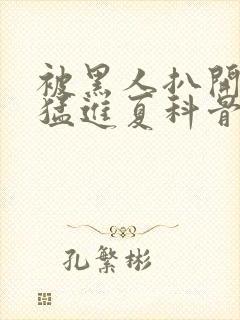 被黑人扒開
猛進夏科骨
孔繁彬